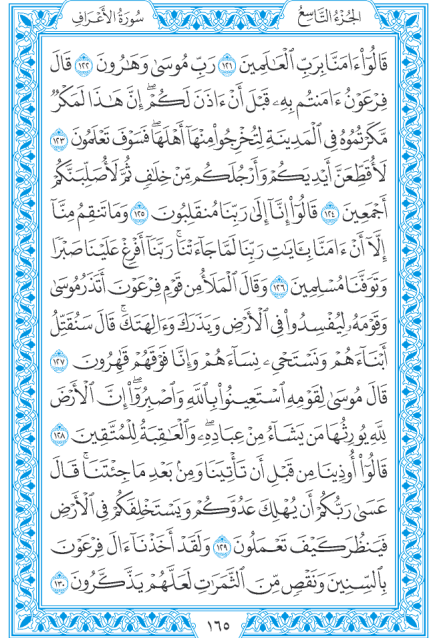 الجُزْءُ التَّاسِعُ
سُورَةُ الأَعْرَافِ
قَالُوٓا۟ ءَامَنَّا بِرَبِّ ٱلْعَٰلَمِينَ ١٢١ رَبِّ مُوسَىٰ وَهَٰرُونَ ١٢٢ قَالَ
فِرْعَوْنُ ءَامَنتُم بِهِۦ قَبْلَ أَنْ ءَاذَنَ لَكُمْ ۖ إِنَّ هَٰذَا لَمَكْرٌ
مَّكَرْتُمُوهُ فِى ٱلْمَدِينَةِ لِتُخْرِجُوا۟ مِنْهَآ أَهْلَهَا ۖ فَسَوْفَ تَعْلَمُونَ ١٢٣
لَأُقَطِّعَنَّ أَيْدِيَكُمْ وَأَرْجُلَكُم مِّنْ خِلَٰفٍ ثُمَّ لَأُصَلِّبَنَّكُمْ
أَجْمَعِينَ ١٢٤ قَالُوٓا۟ إِنَّآ إِلَىٰ رَبِّنَا مُنقَلِبُونَ ١٢٥ وَمَا تَنقِمُ مِنَّآ
إِلَّآ أَنْ ءَامَنَّا بِـَٔايَٰتِ رَبِّنَا لَمَّا جَآءَتْنَا ۚ رَبَّنَآ أَفْرِغْ عَلَيْنَا صَبْرًا
وَتَوَفَّنَا مُسْلِمِينَ ١٢٦ وَقَالَ ٱلْمَلَأُ مِن قَوْمِ فِرْعَوْنَ أَتَذَرُ مُوسَىٰ
وَقَوْمَهُۥ لِيُفْسِدُوا۟ فِى ٱلْأَرْضِ وَيَذَرَكَ وَءَالِهَتَكَ ۚ قَالَ سَنُقَتِّلُ
أَبْنَآءَهُمْ وَنَسْتَحْىِۦ نِسَآءَهُمْ وَإِنَّا فَوْقَهُمْ قَٰهِرُونَ ١٢٧
قَالَ مُوسَىٰ لِقَوْمِهِ ٱسْتَعِينُوا۟ بِٱللَّهِ وَٱصْبِرُوٓا۟ ۖ إِنَّ ٱلْأَرْضَ
لِلَّهِ يُورِثُهَا مَن يَشَآءُ مِنْ عِبَادِهِۦ ۖ وَٱلْعَٰقِبَةُ لِلْمُتَّقِينَ ١٢٨
قَالُوٓا۟ أُوذِينَا مِن قَبْلِ أَن تَأْتِيَنَا وَمِنۢ بَعْدِ مَا جِئْتَنَا ۚ قَالَ
عَسَىٰ رَبُّكُمْ أَن يُهْلِكَ عَدُوَّكُمْ وَيَسْتَخْلِفَكُمْ فِى ٱلْأَرْضِ
فَيَنظُرَ كَيْفَ تَعْمَلُونَ ١٢٩ وَلَقَدْ أَخَذْنَآ ءَالَ فِرْعَوْنَ
بِٱلسِّنِينَ وَنَقْصٍ مِّنَ ٱلثَّمَرَٰتِ لَعَلَّهُمْ يَذَّكَّرُونَ ١٣٠
١٦٥